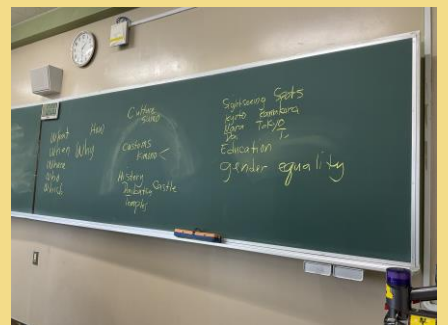 What How
When Why
Where
Who
Which
Culture
Customs
kimono <
History
Castle
Temples
Sightseeing Spots
Kyoto Kamakura
Nara Tokyo
Education
gender equality